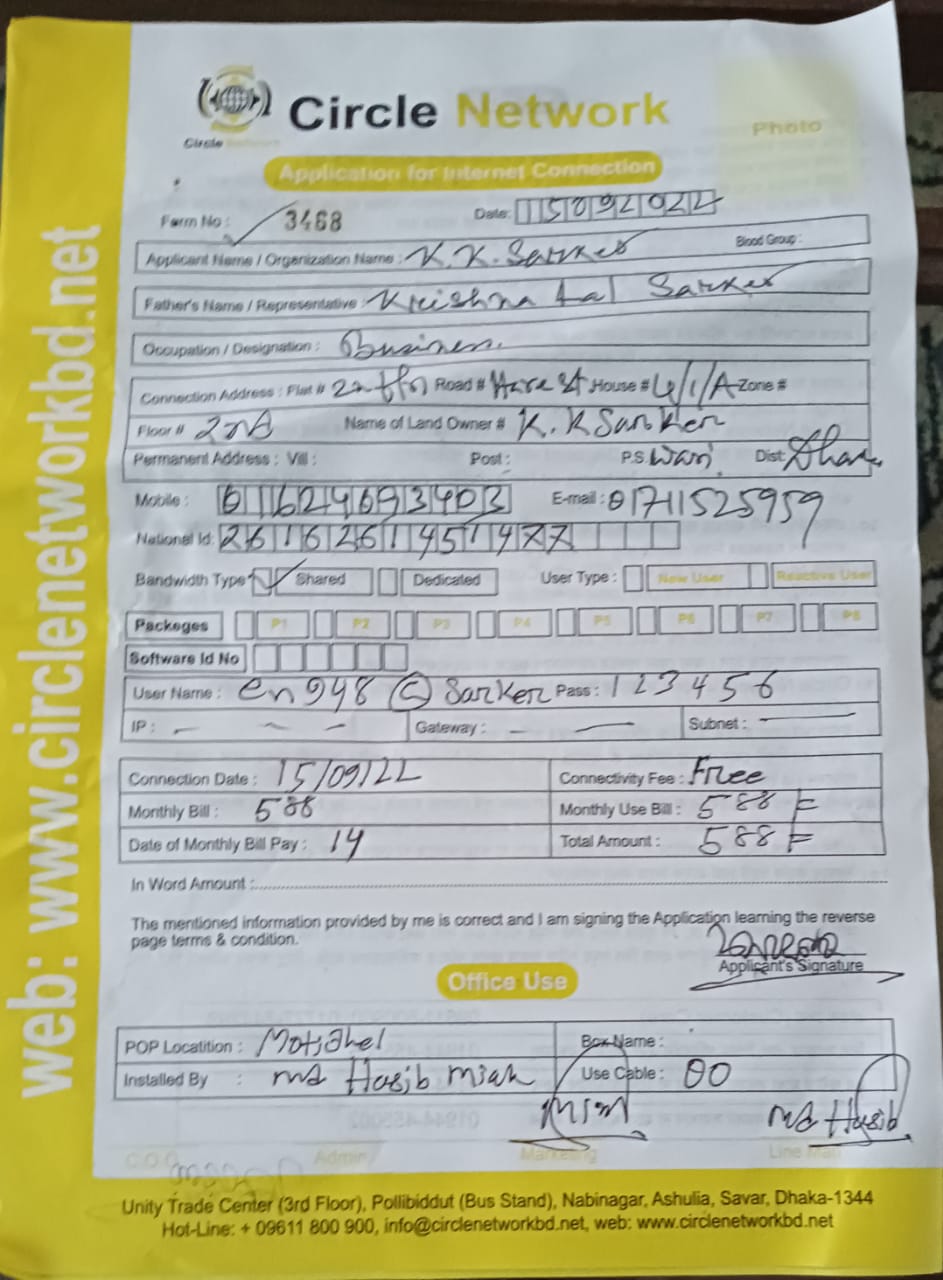 Circle Network
Circle
Photo
Application for Internet Connection
Form No : 3468 Date: 15092022
Applicant Name / Organization Name : K.K. Sarker Blood Group :
Father's Name / Representative : Krishna Lal Sarker
Occupation / Designation : Business.
Connection Address : Flat # Road # Hare St House # 4/1/A Zone #
Floor # 2nd Name of Land Owner # K.K Sarker
Permanent Address : Vill : Post : P.S. Wari Dist: Dhaka
Mobile : 01624693403 E-mail : 01711525959
National Id: 2616261451477
Bandwidth Type Shared Dedicated User Type : New User Reactive User
Packeges P1 P2 P3 P4 P5 P6 P7 P8
Software Id No
User Name : en948@Sarker Pass : 123456
IP : – – – Gateway : – – Subnet : –
Connection Date : 15/09/22 Connectivity Fee : Free
Monthly Bill : 588 Monthly Use Bill : 588/=
Date of Monthly Bill Pay : 14 Total Amount : 588/=
In Word Amount :
The mentioned information provided by me is correct and I am signing the Application learning the reverse
page terms & condition.
Applicant's Signature
Office Use
POP Locatition : Motijhel Box Name :
Installed By : md Hasib miah Use Cable : 00
md Hasib
C.O.O Admin Marketing Line Man
Unity Trade Center (3rd Floor), Pollibiddut (Bus Stand), Nabinagar, Ashulia, Savar, Dhaka-1344
Hot-Line: + 09611 800 900, info@circlenetworkbd.net, web: www.circlenetworkbd.net
web: www.circlenetworkbd.net